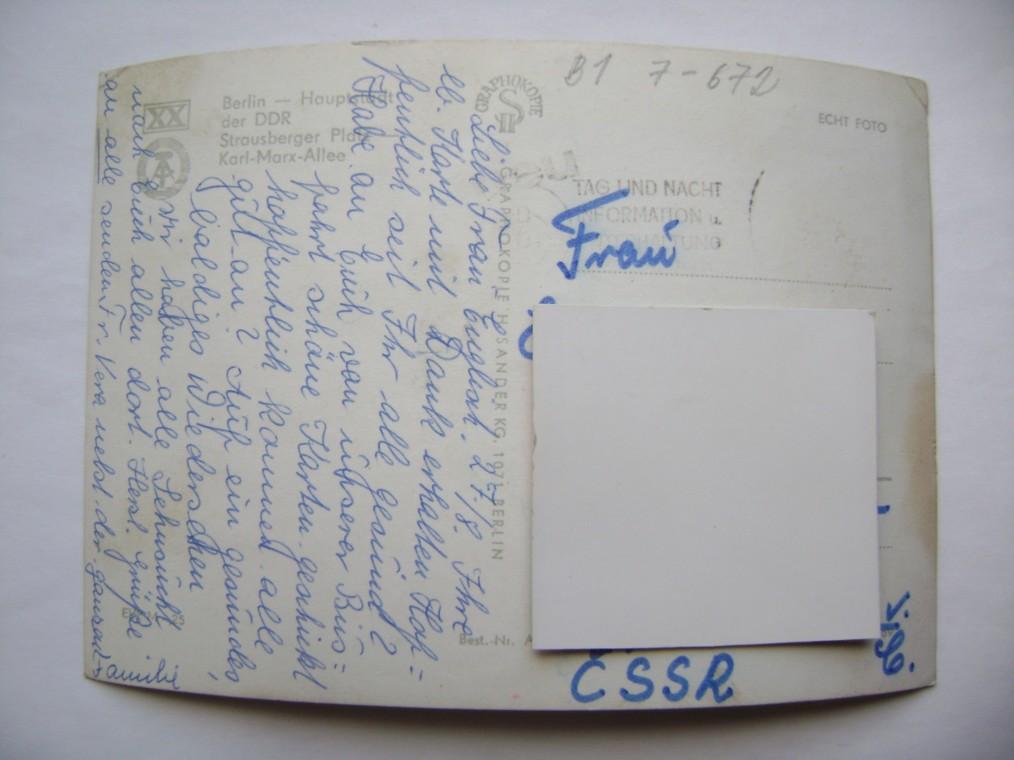 B1 7-672
ECHT FOTO
XX
Berlin — Hauptstadt
der DDR
Strausberger Platz
Karl-Marx-Allee
GRAPHOKOPIE
GRAPHOKOPIE H. SANDER KG. 197 BERLIN
TAG UND NACHT
INFORMATION u.
UNTERHALTUNG
Liebe Frau 27./8. Ihre
lb. Karte mit Dank erhalten Hof=
fentlich seit Ihr alle gesund?
Habe an Euch von unserer Büs=
fahrt schöne Karten geschickt
hoffentlich kommen alle
gut an? Auf ein gesundes,
baldiges Wiedersehen
wir haben alle Sehnsucht
nach Euch allen dort. Herzl. Grüße
an alle sendet Fr. Vera nebst der ganzen
Familie
Best.-Nr. A
Frau
CSSR